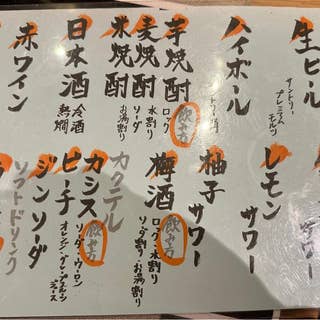 生ビール
サントリー
プレミアム
モルツ
ハイボール
芋焼酎
麦焼酎
米焼酎
飲み方
ロック
水割り
ソーダ
お湯割り
日本酒
冷酒
熱燗
赤ワイン
サワー
レモンサワー
柚子サワー
梅酒
飲み方
ロック・水割り
ソーダ割り
お湯割り
カクテル
カシス
ピーチ
飲み方
ソーダ・ウーロン
オレンジ・グレープフルーツ
ジュース
ジンソーダ
ソフトドリンク